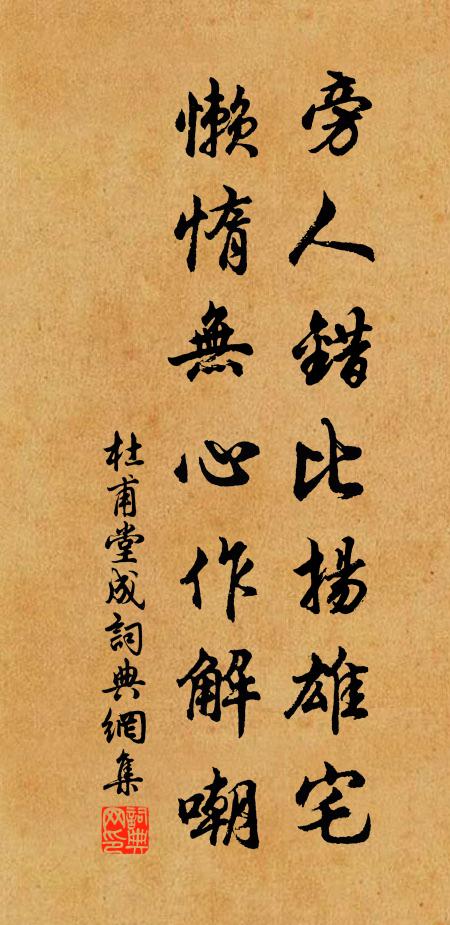 旁人錯比揚雄宅
懶惰無心作解嘲
杜甫堂成詞典網集
詞典
网印